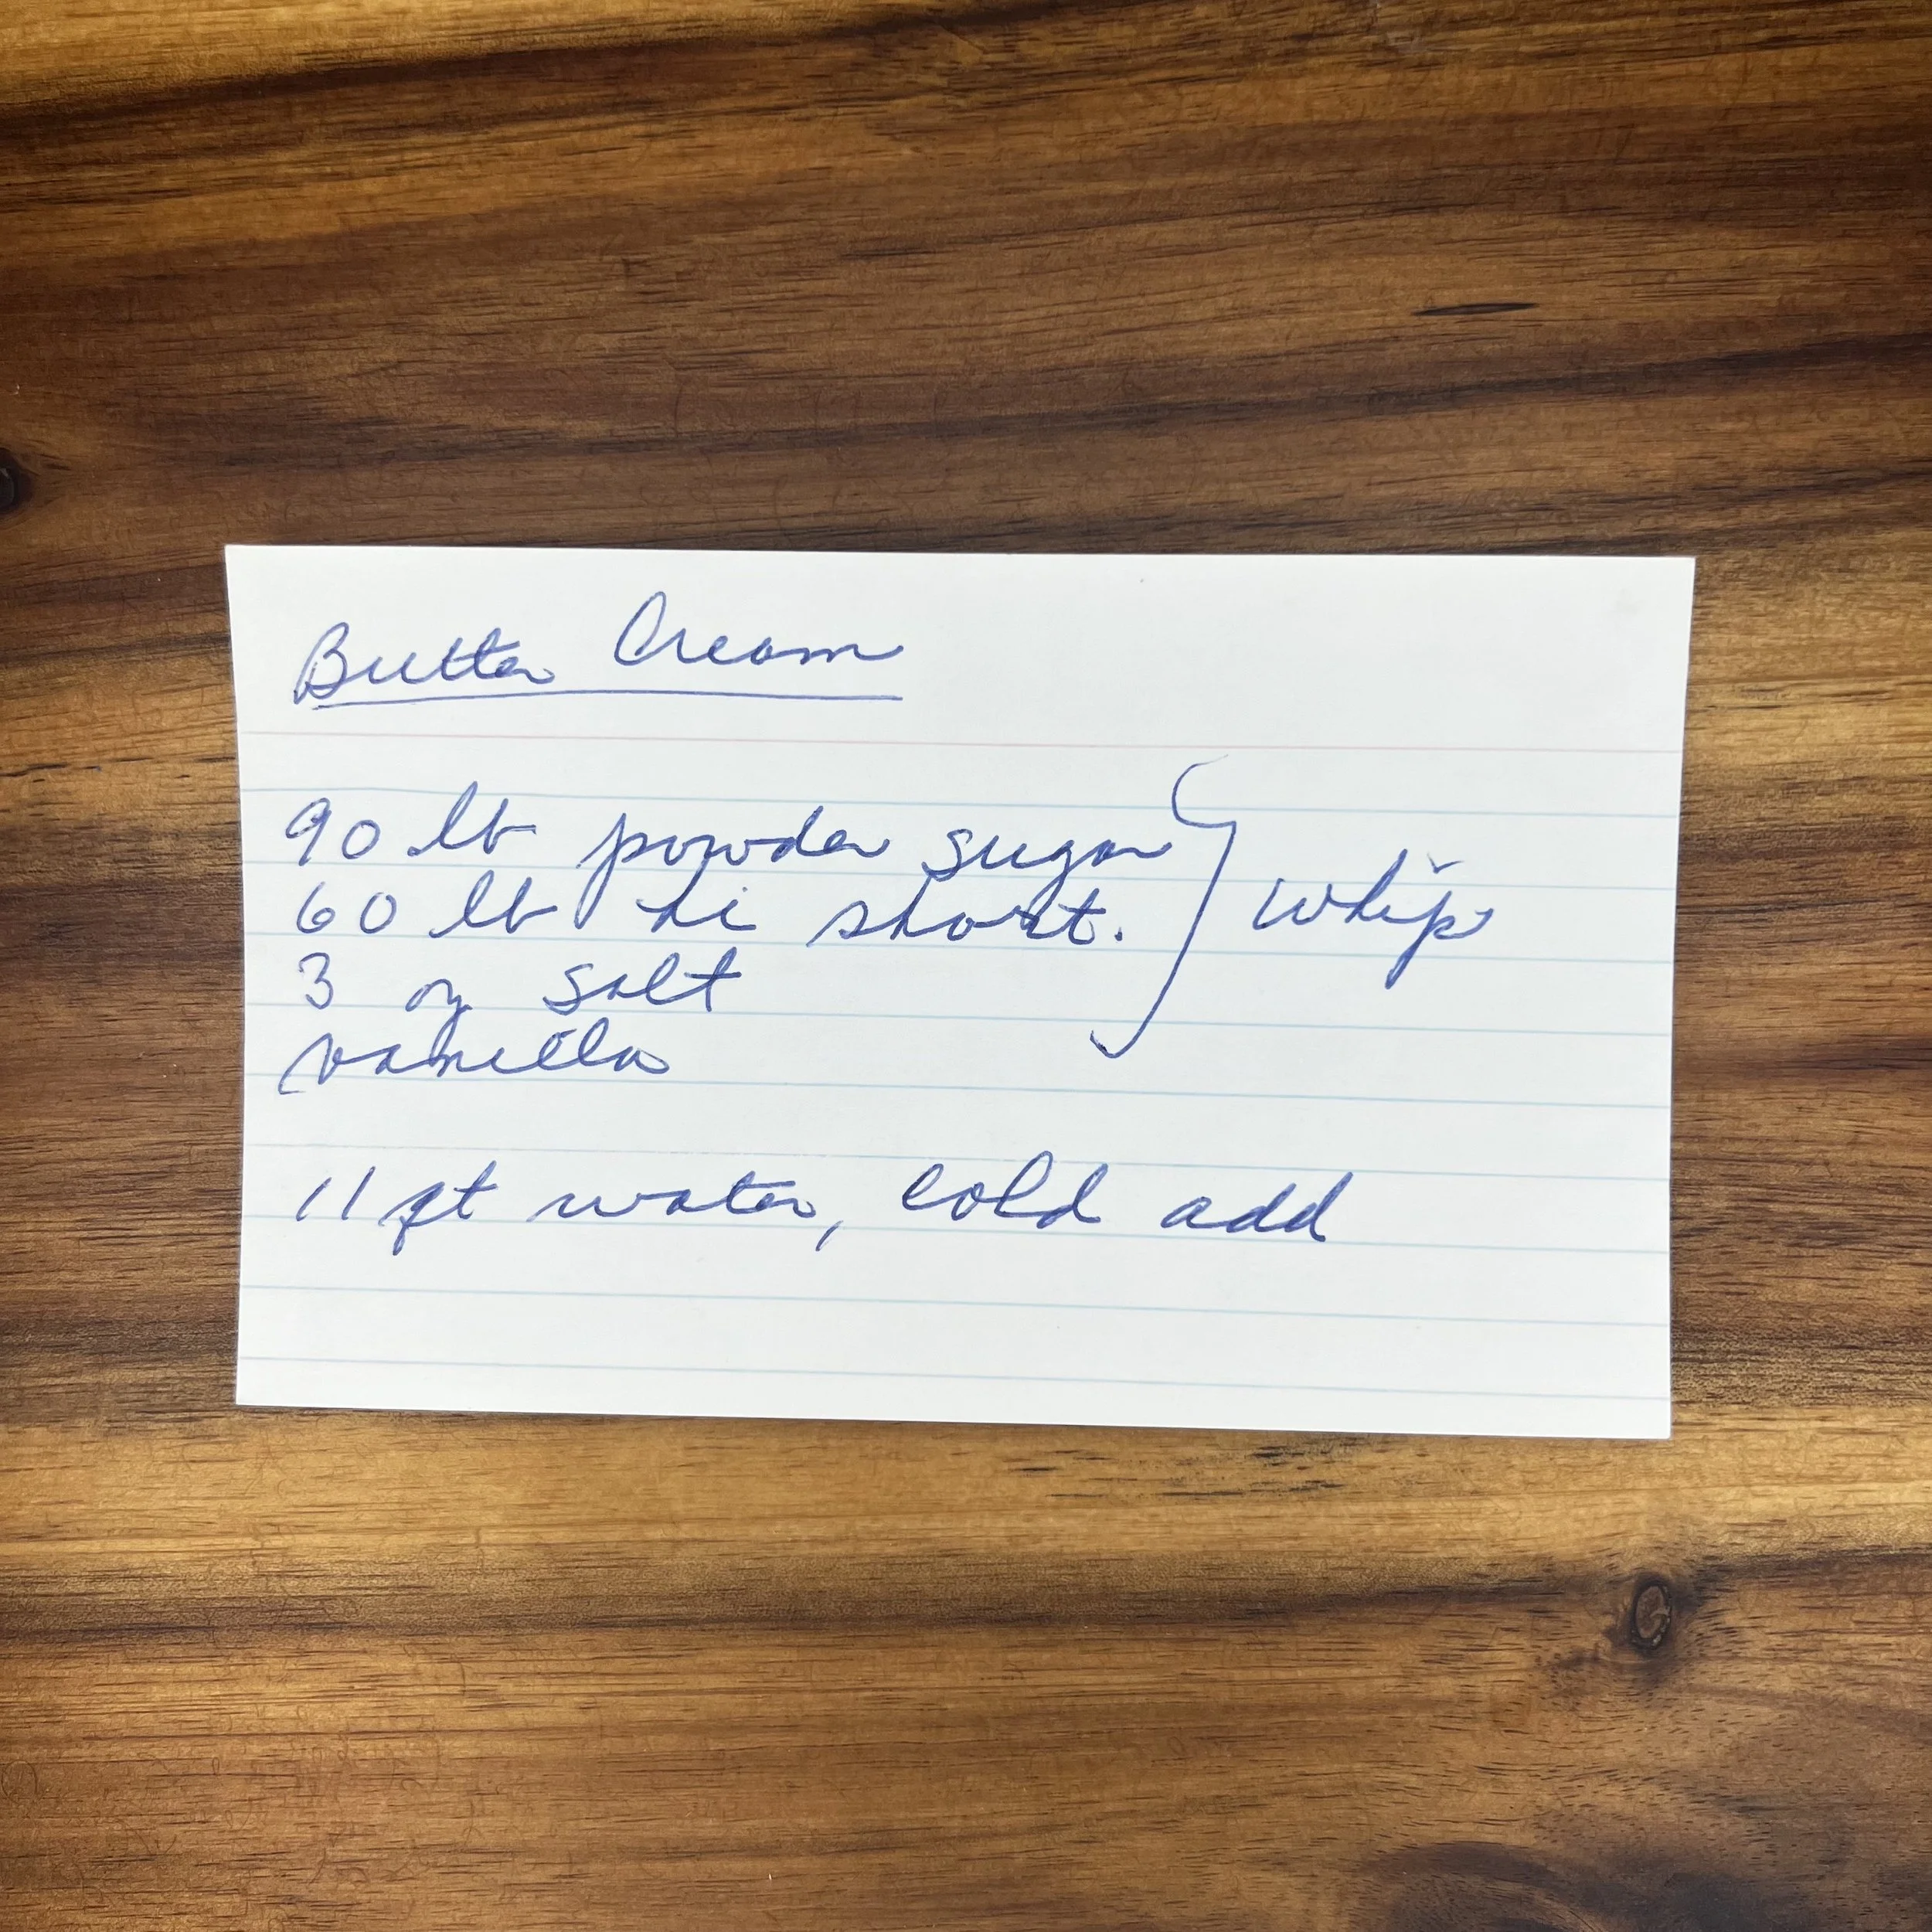 Butter Cream
90 lb powder sugar
60 lb hi short.
3 oz salt
vanilla
whip
11 qt water, cold add